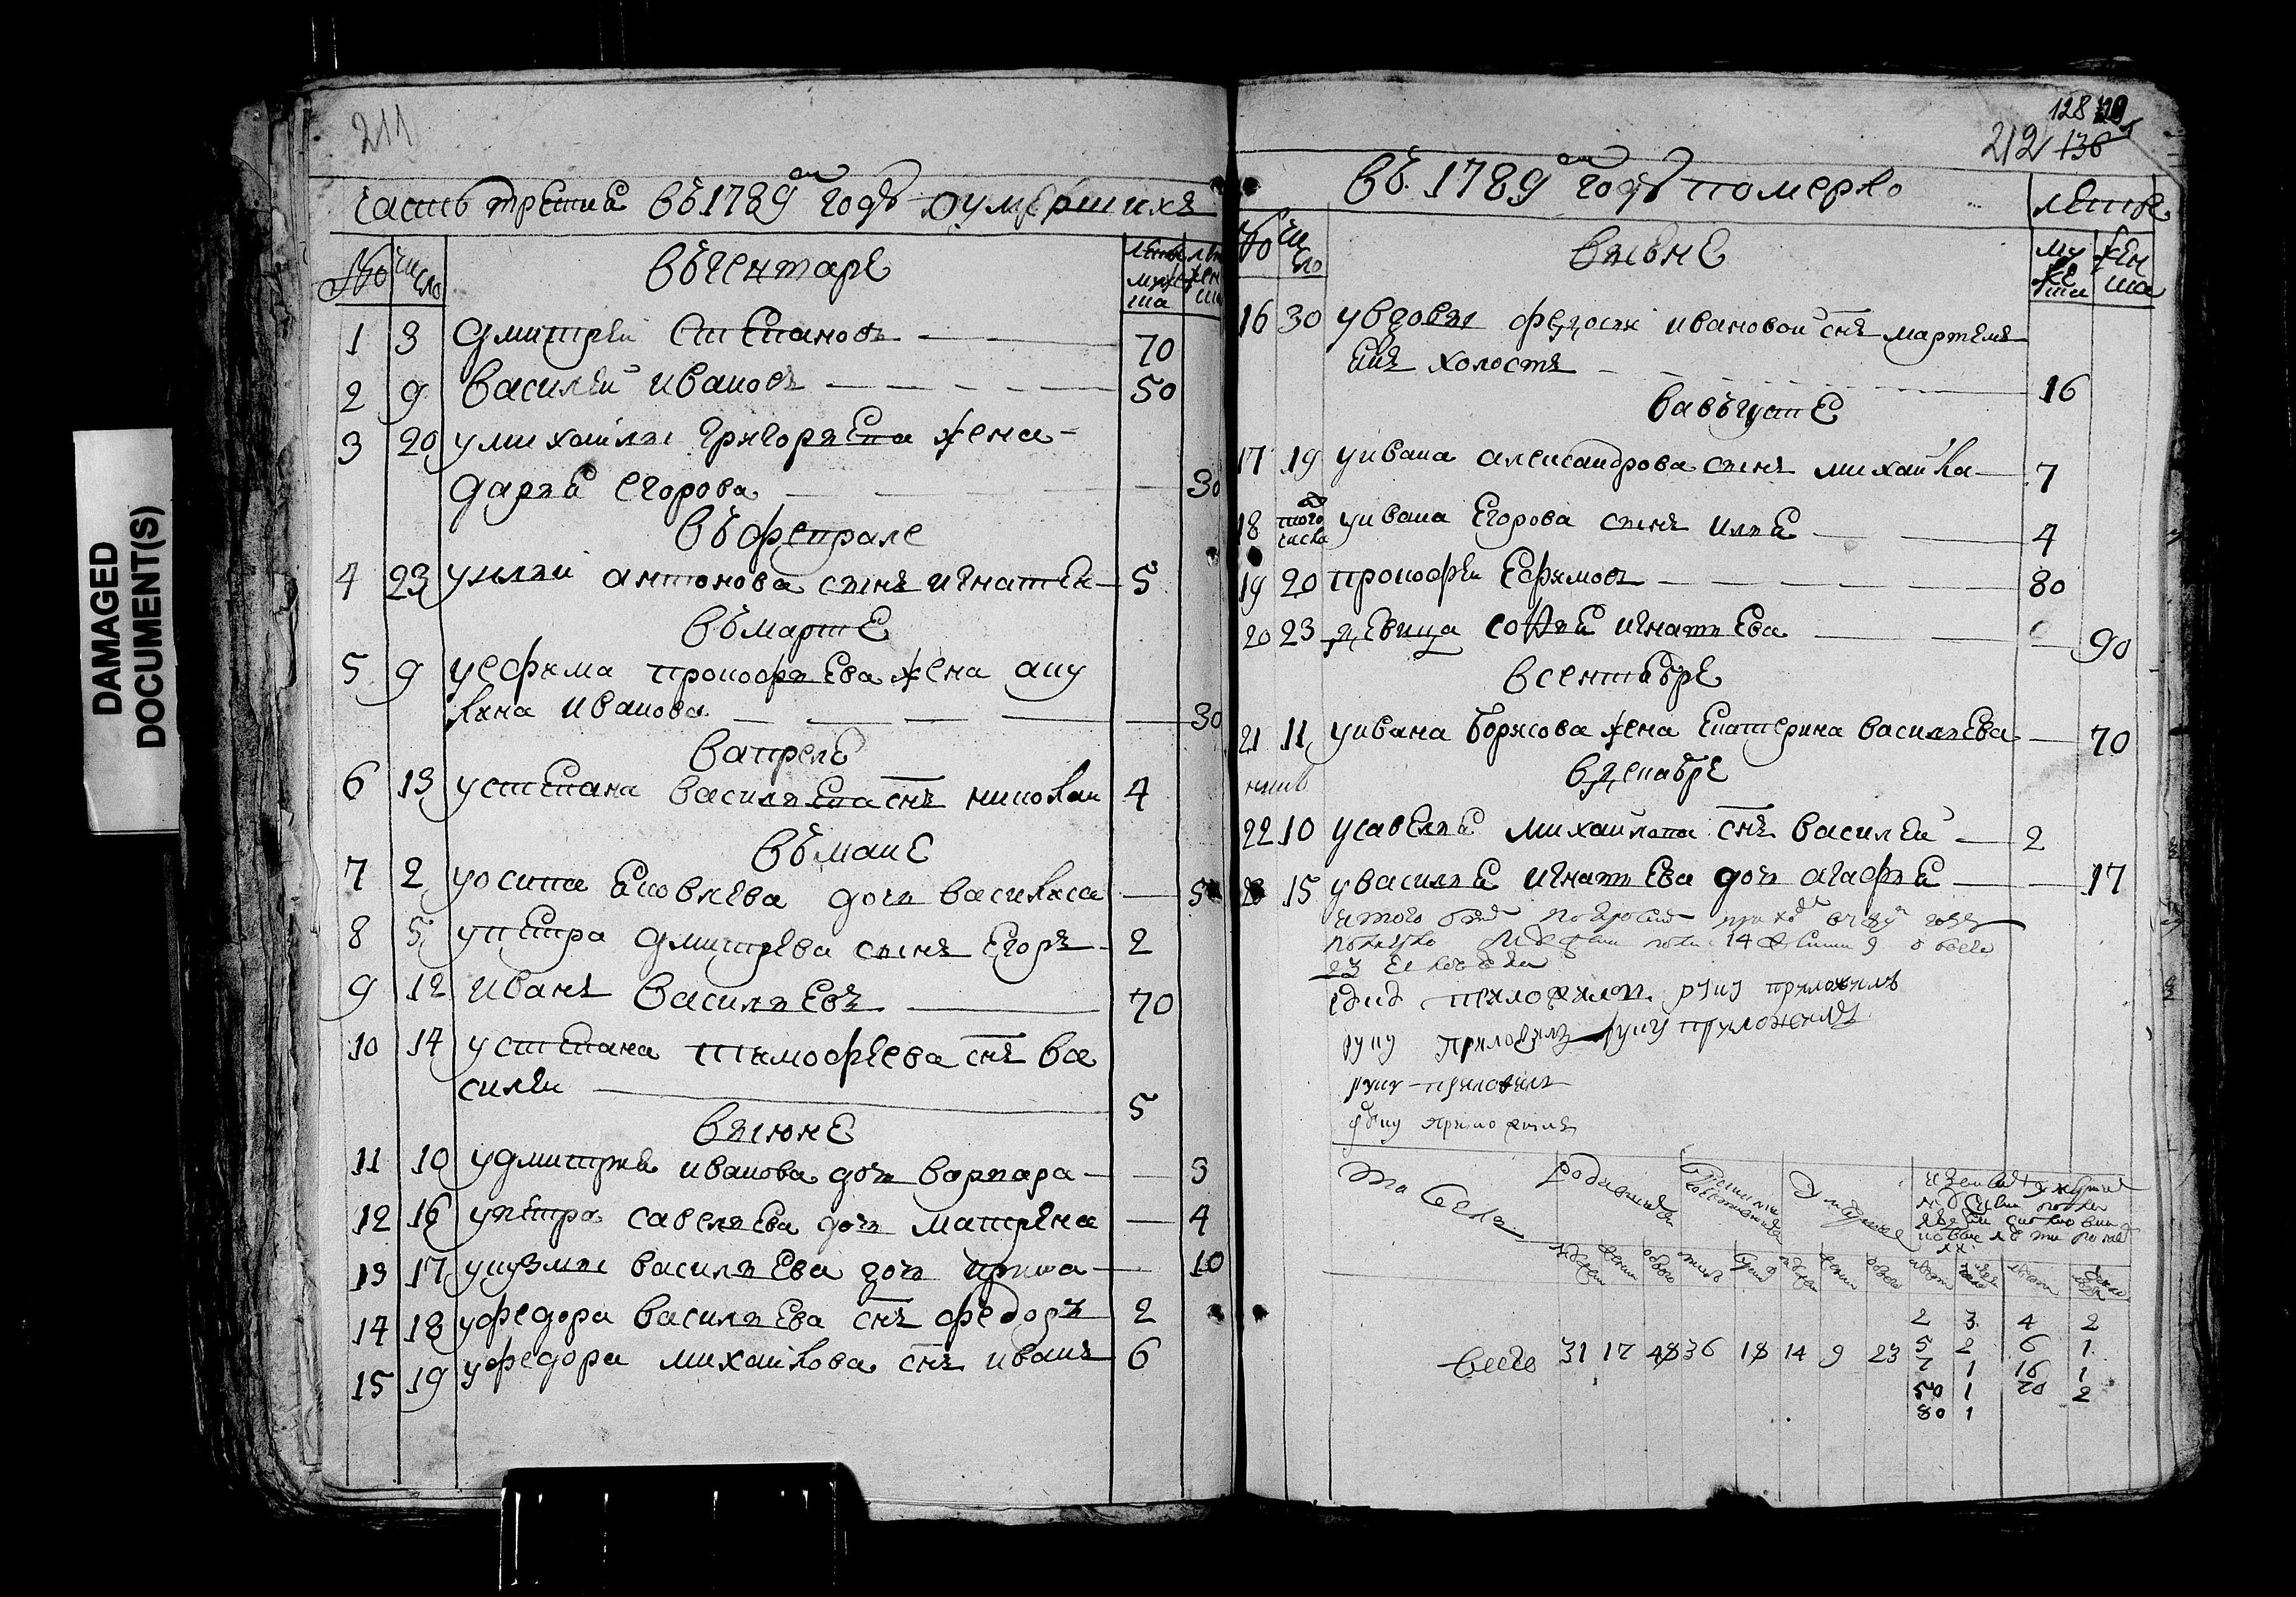 DAMAGED
DOCUMENT(S)
211
часть третия въ 1789м годѣ оумершихъ
№ число
въ генъваре
лета мужеска
лет женска
1 3 Дмитрей Степановъ 70
2 9 Василей Ивановъ 50
3 20 у михаилы григорьева жена
дарья егорова 30
въ феврале
4 23 у ильи антонова сынъ игнатеи 5
въ марте
5 9 у ефима прокофьева жена аку
лина иванова 30
в апреле
6 13 у степана васильева снъ николаи 4
въ маие
7 2 у осипа яковлева дочь василиса 5
8 5 у петра дмитрева сынъ егоръ 2
9 12 иванъ васильевъ 70
10 14 у степана тимофеева снъ ва
силеи 5
в июне
11 10 у дмитрия иванова дочь варвара 3
12 16 у петра савельева дочь матрена 4
13 17 у кузмы васильева дочь ирина 10
14 18 у федора васильева снъ федоръ 2
15 19 у федора михаилова снъ иванъ 6
128
212 136
въ 1789м годѣ померло
лета
№ число
муже ска
жен ска
16 30 у вдовы федосьи ивановой снъ мартемь
холостъ 16
в августе
17 19 у ивана александрова сынъ михаила 7
18 того числа у ивана егорова сынъ илья 4
19 20 прокофеи ефимовъ 80
20 23 девица софья игнатьева 90
в сентябре
21 11 у ивана борисова жена екатерина васильева 70
в декабре
22 10 у савелья михаилова снъ василеи 2
23 15 у василья игнатьева дочь агафья 17
14 9 обоего
23
приложилъ руку приложилъ
руку приложилъ руку приложилъ
руку приложилъ
приложилъ
родившихся
2 3 4 2
всего 31 17 48 36 18 14 9 23 5 2 6 1
7 1 16 1
50 1 70 2
80 1